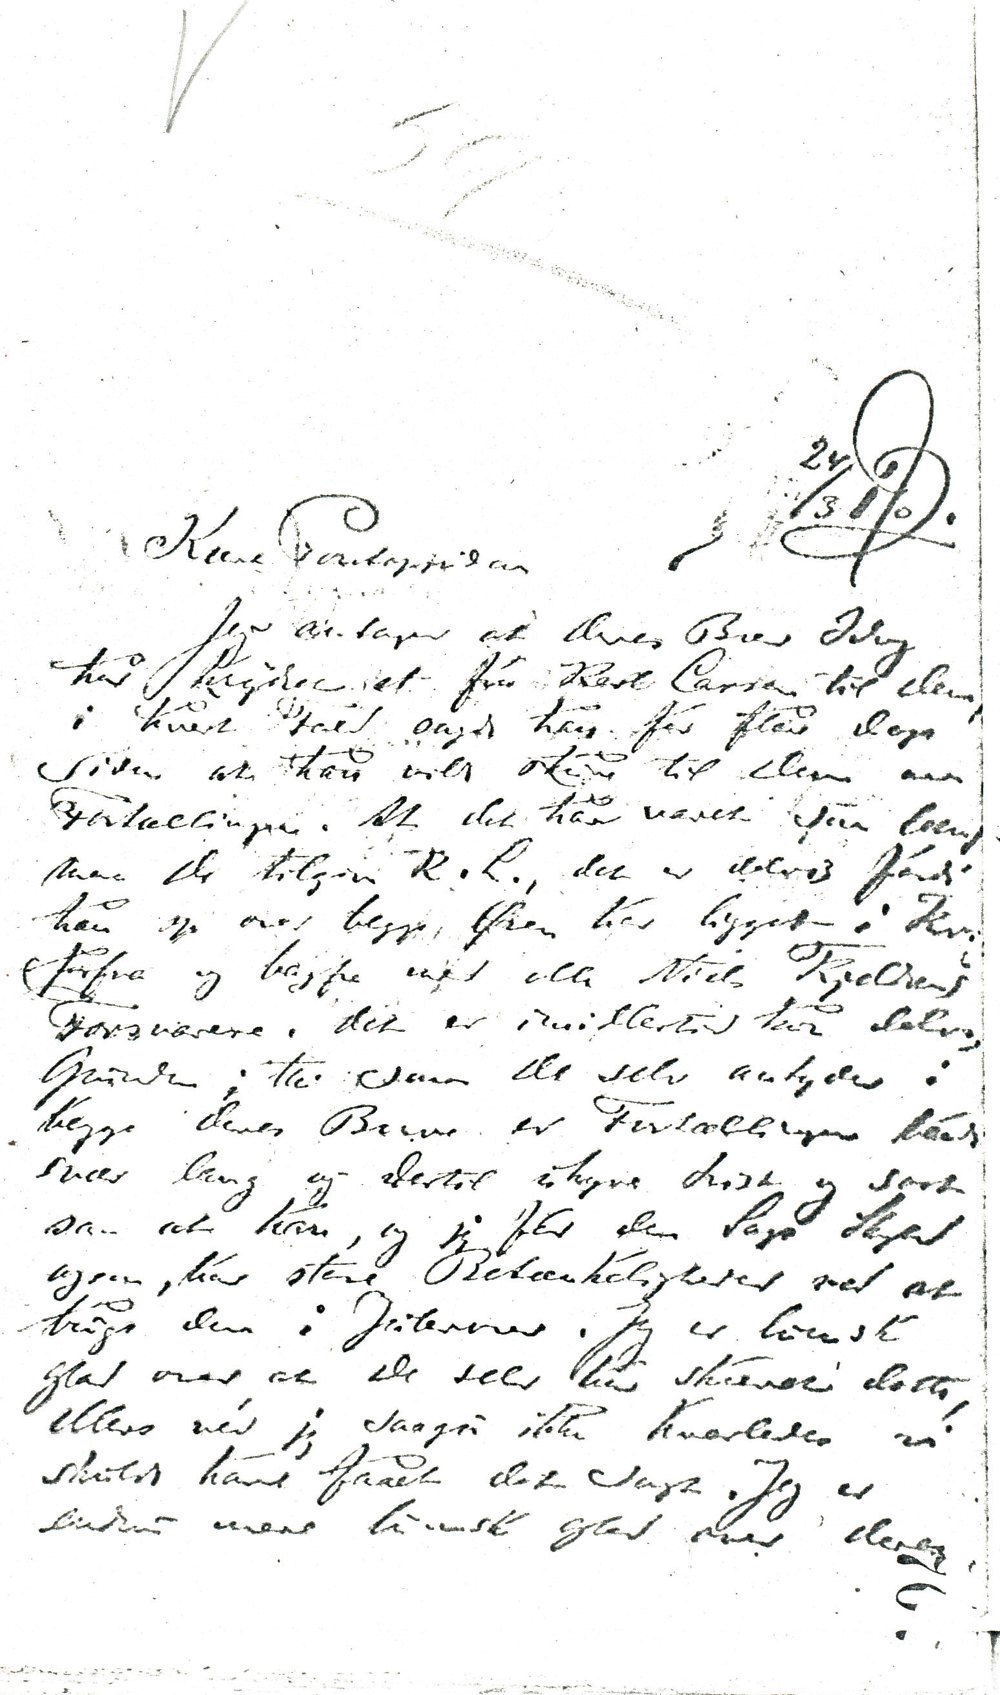 V
59
24/3 10.
Kære Pontoppidan
Jeg antager at Deres Brev Idag
har krydset et fra Karl Larsen til Dem,
i hvert Fald sagde han for flere Dage
siden at han vilde skrive til Dem om
Fortællingen. At det har varet saa læng
maa De tilgive K. L., det er delvis fordi
han op over begge Øren har ligget i
forfra og bagfra med alle Niels Kjeldsens
Forsvarere. Det er imidlertid kun delvis
Grunden; thi som De selv antyder i
begge Deres Breve er Fortællingen baade
svær lang og dertil uhyre trist og sort
saa at han, og jeg for den Sags Skyld
ogsaa, har store Betænkeligheder ved at
bruge den i Julerner. Jeg er lumsk
glad over at De selv har skrevet dette,
ellers véd jeg saagu ikke hvorledes vi
skulde have faaet det sagt. Jeg er
endnu mere lumsk glad over Deres